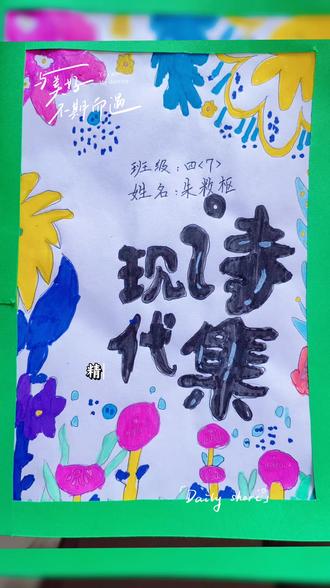 与美好
不期而遇
班级：四<7>
姓名：朱毅枢
现代
诗集
精
「Daily share」